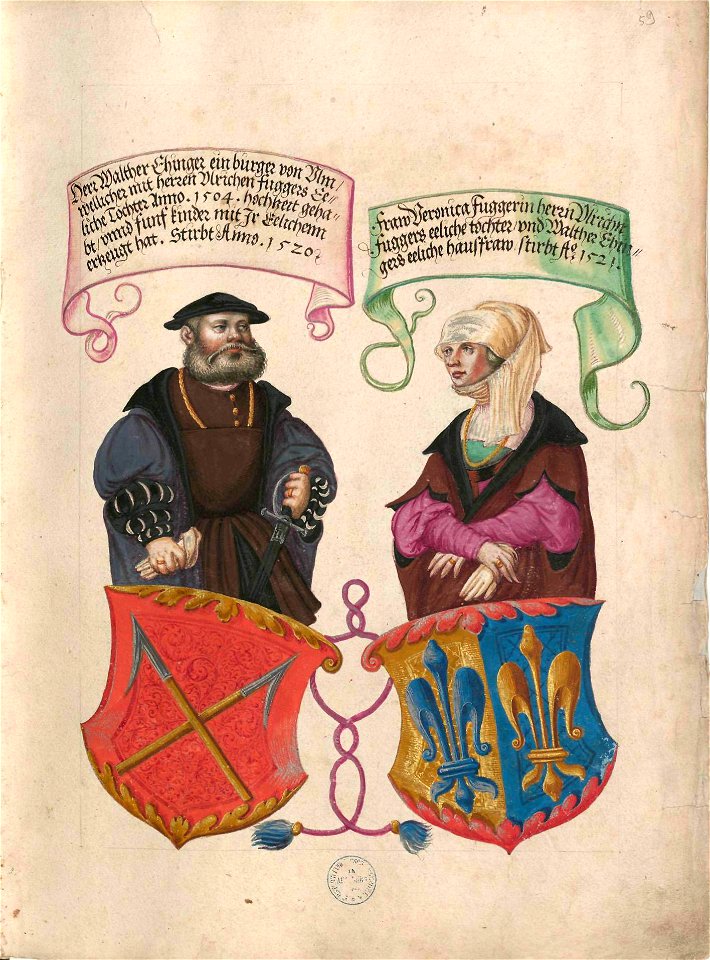 59
Herr Walther Ehinger ein burger von Ulm/
wellicher mit herren Ulrichen fuggers Ee-
liche Tochter Anno. 1504. hochzeit geha-
bt/ vnnd funf kinder mit Jr Eelichenn
erzeugt hat. Stirbt Anno. 1520.
Fraw Veronica Fuggerin herrn Ulrichn
fuggers eeliche tochter/ vnd Walther Ehin-
gers eeliche hausfraw. stirbt Aº. 1521.